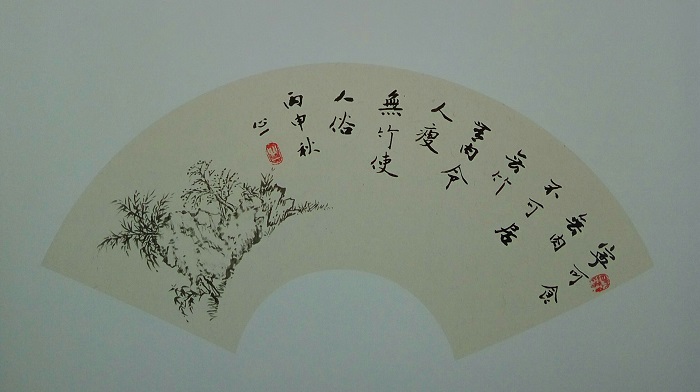 寧可食
無肉
不可居
無竹
無肉令
人瘦
無竹使
人俗
丙申秋
心一